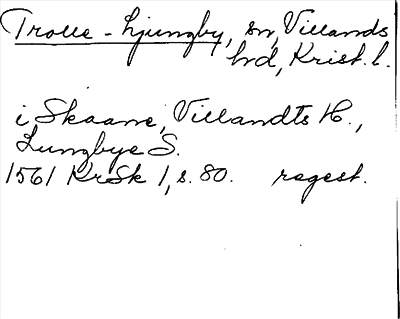 Trolle-Ljungby, sn, Villands
hd, Krist. l.
i Skaane, Villandts H.,
Lungbye S.
1561 KrSk 1, s. 80. regest.